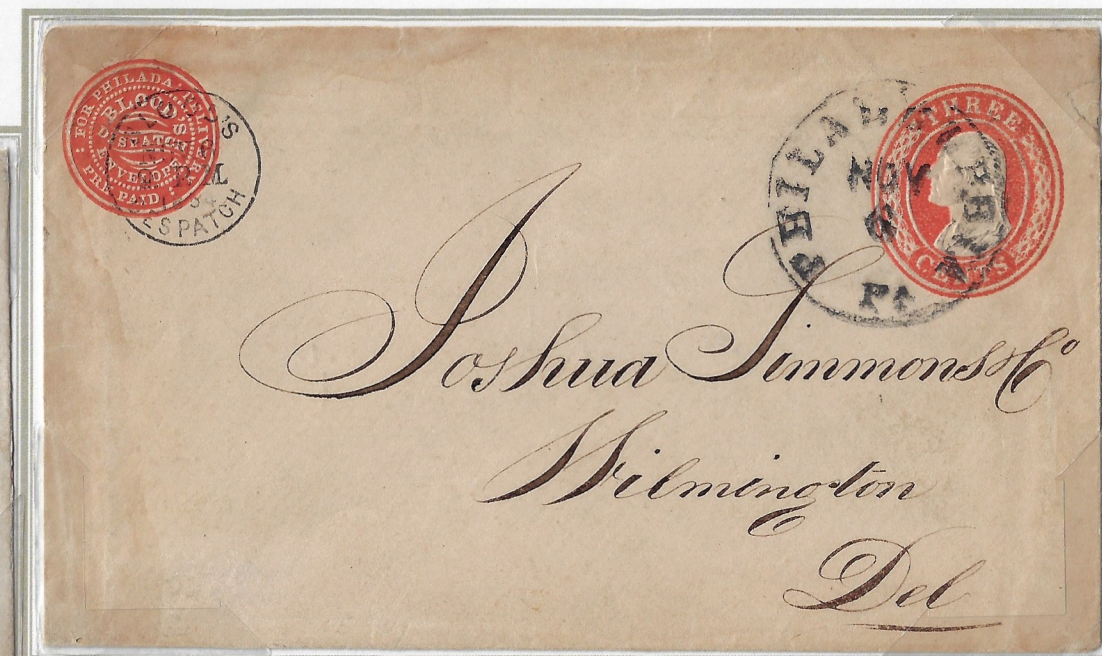 FOR PHILADA. DELIVERY
PRE-PAID
BLOOD'S
DESPATCH
ENVELOPE
BLOOD'S
54
DESPATCH
PHILADELPHIA
NOV
Pa
THREE
CENTS
Joshua Simmons & Co
Wilmington
Del